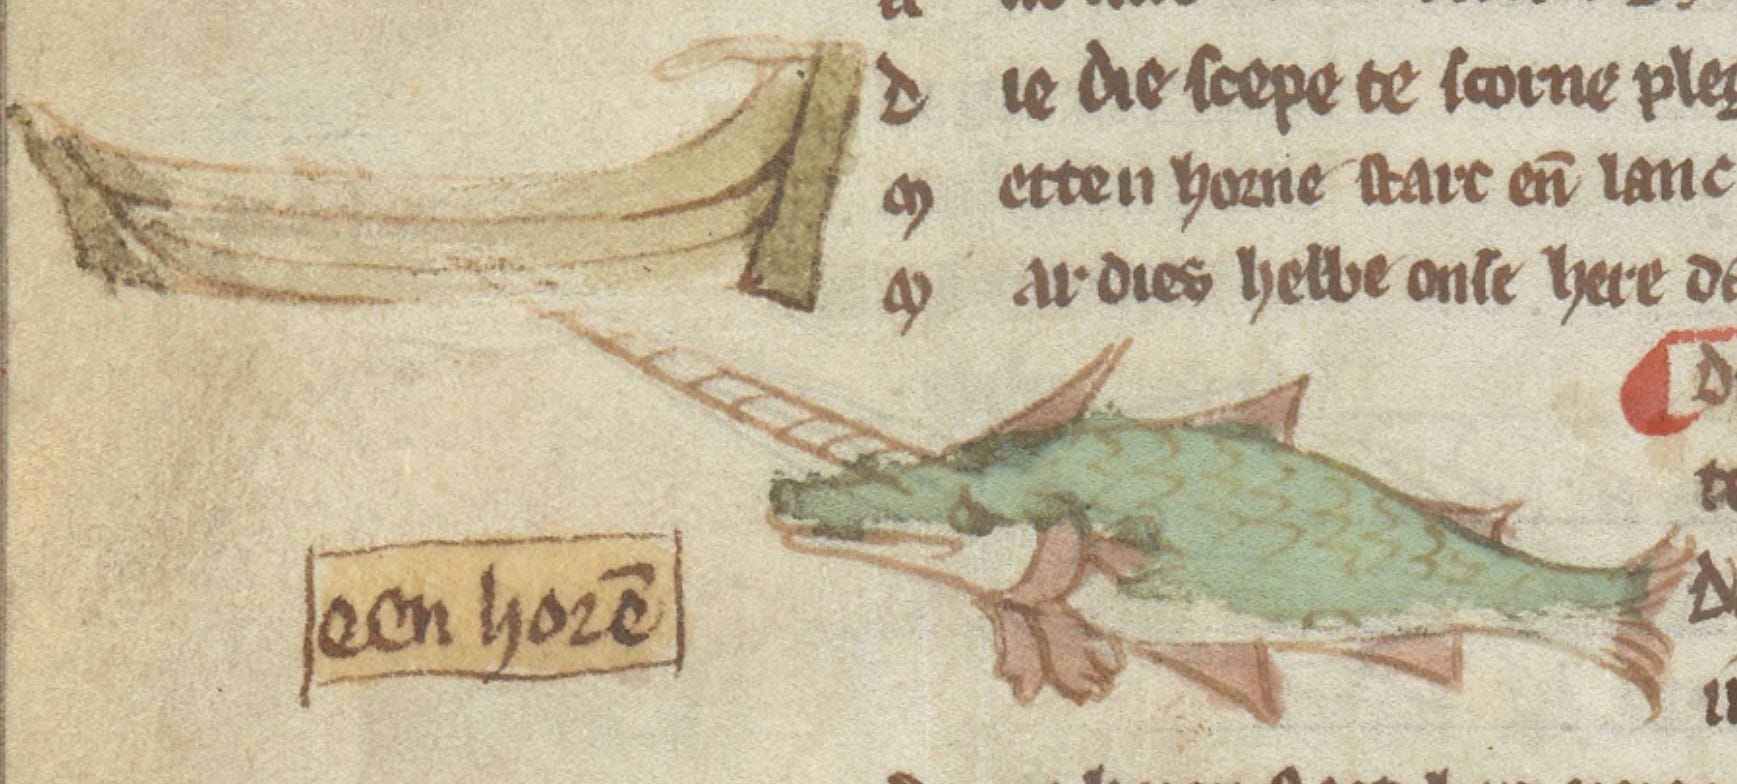 d ie die scepe te scorne pleg
m etten horne starc en̄ lanc
m ar dies helbe onse here da
een horē